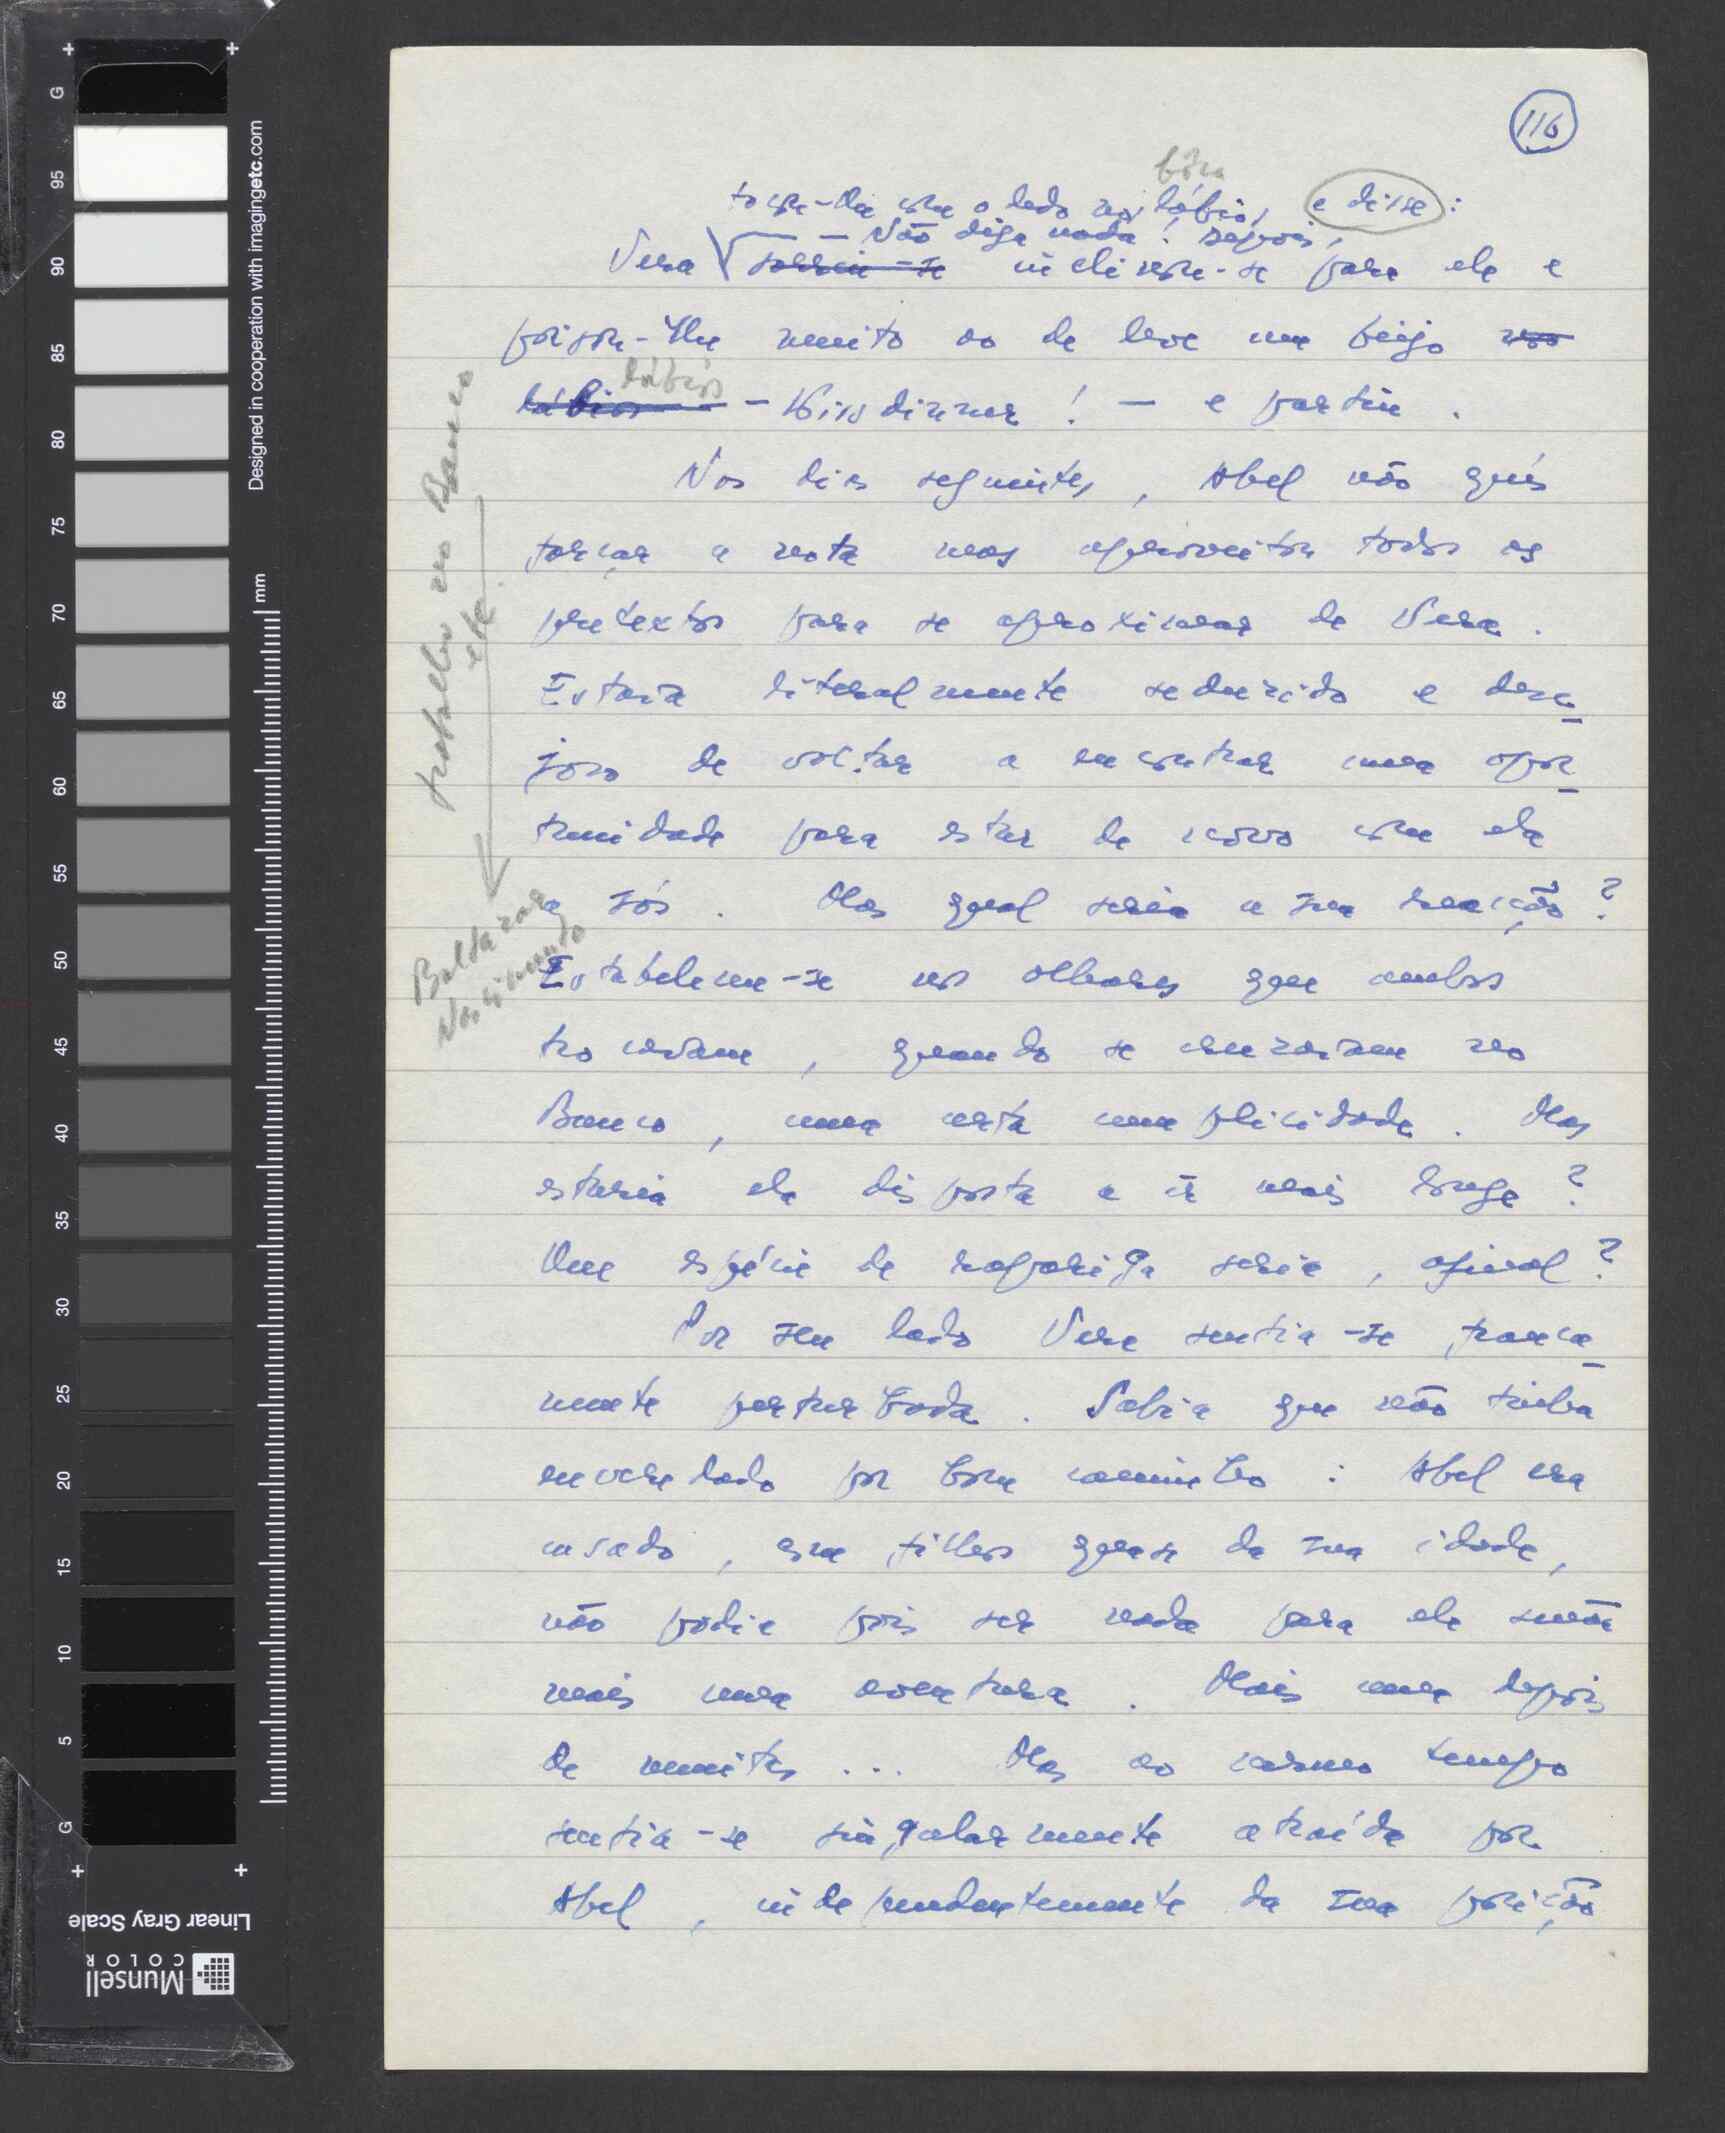 116
bôca
tocou-lhe com o dedo nos lábios, e disse:
— Não diga nada! Depois,
Vera sorriu-se inclinou-se para ele e
poisou-lhe muito ao de leve um beijo nos
lábios
lábios — Kiss dinner! — e partiu.
Nos dias seguintes, Abel não quís
forçar a nota mas aproveitou todos os
pretextos para se aproximar de Vera.
Estava literalmente seduzido e dese-
joso de voltar a encontrar uma opor-
tunidade para estar de novo com ela
a sós. Mas qual seria a sua reacção?
Estabeleceu-se nos olhares que ambos
trocavam, quando se cruzavam no
Banco, uma certa cumplicidade. Mas
estaria ela disposta a ir mais longe?
Que espécie de rapariga seria, afinal?
Por seu lado Vera sentia-se franca-
mente perturbada. Sabia que não tinha
enveredado por bom caminho: Abel era
casado, com filhos quase da sua idade,
não podia pois ser nada para ele senão
mais uma aventura. Mais uma depois
de muitas... Mas ao mesmo tempo
sentia-se singularmente atraída por
Abel, independentemente da sua posição
trabalho no Banco
etc.
Baltazar
Nascimento
Designed in cooperation with imagingetc.com
mm
G
95
90
85
80
75
70
65
60
55
50
45
40
35
30
25
20
15
10
5
G
Linear Gray Scale
Munsell
COLOR